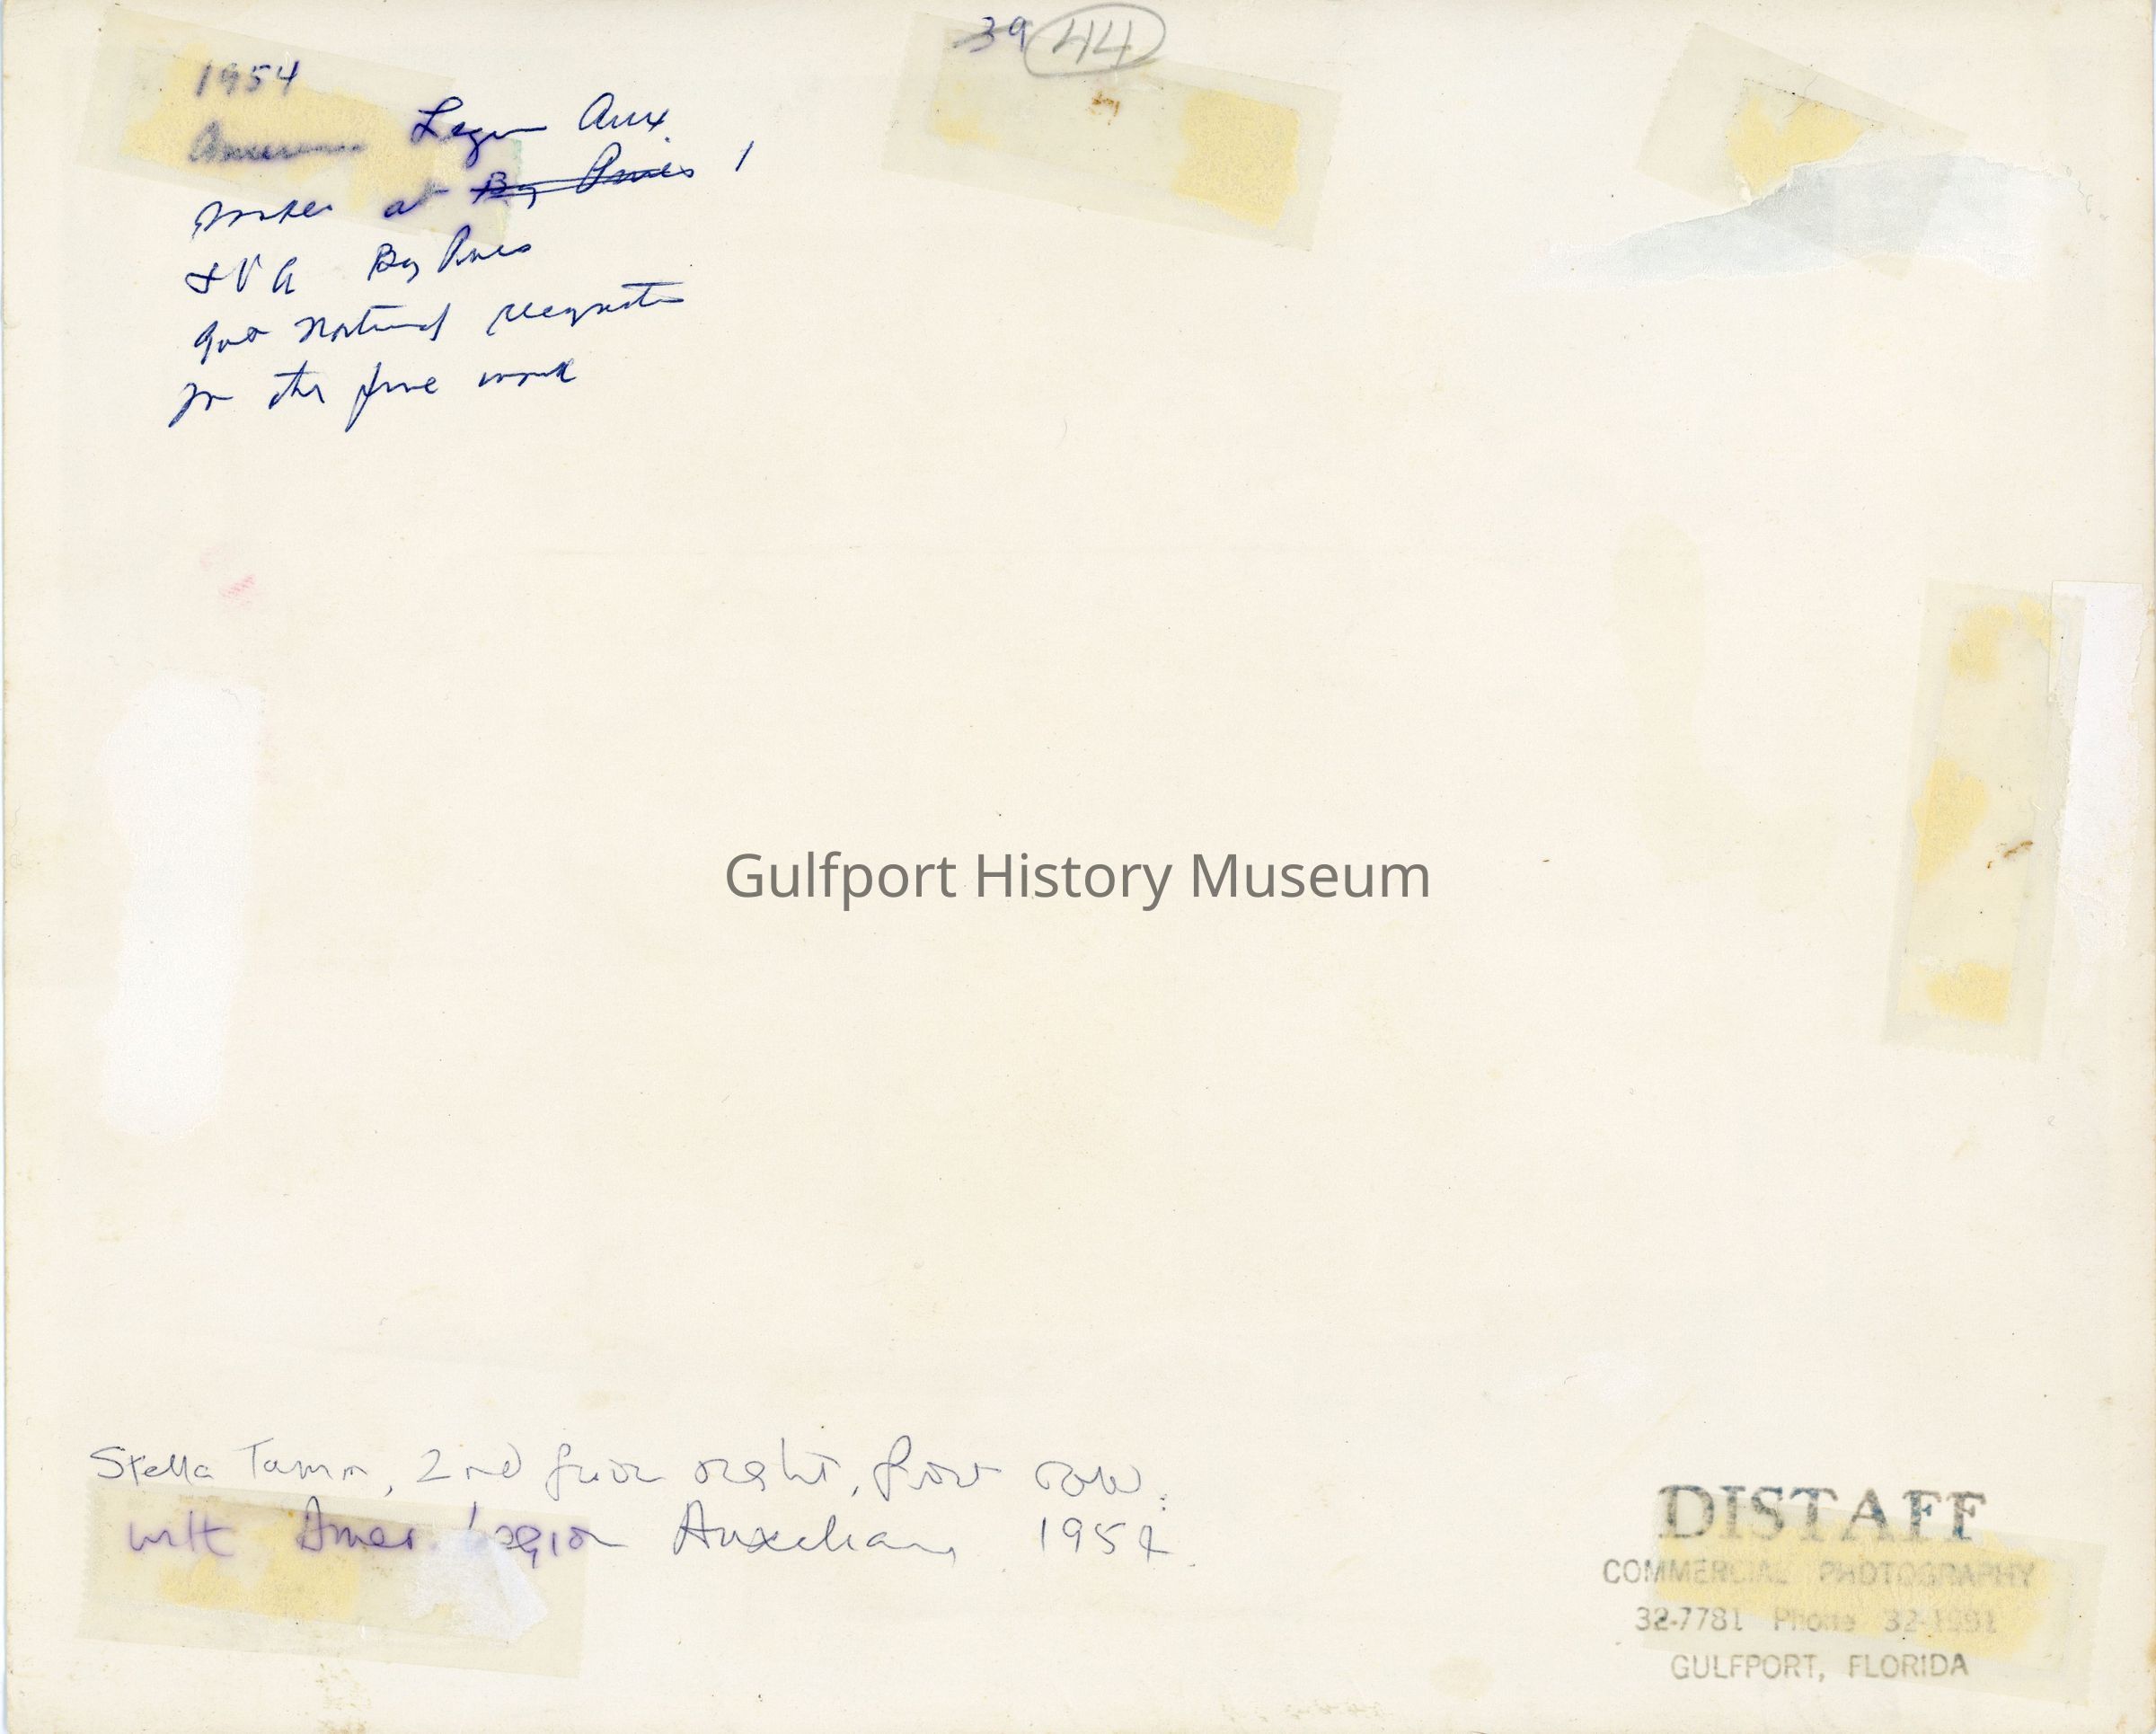 39 44
1954
American Legion Aux.
at Bay Pines
VA Bay Pines
got National recognition
for the fine work
Gulfport History Museum
Stella Tamm, 2nd from right, front row.
with Amer. Legion Auxiliary 1954.
DISTAFF
COMMERCIAL PHOTOGRAPHY
32-7781 Phone 32-1991
GULFPORT, FLORIDA